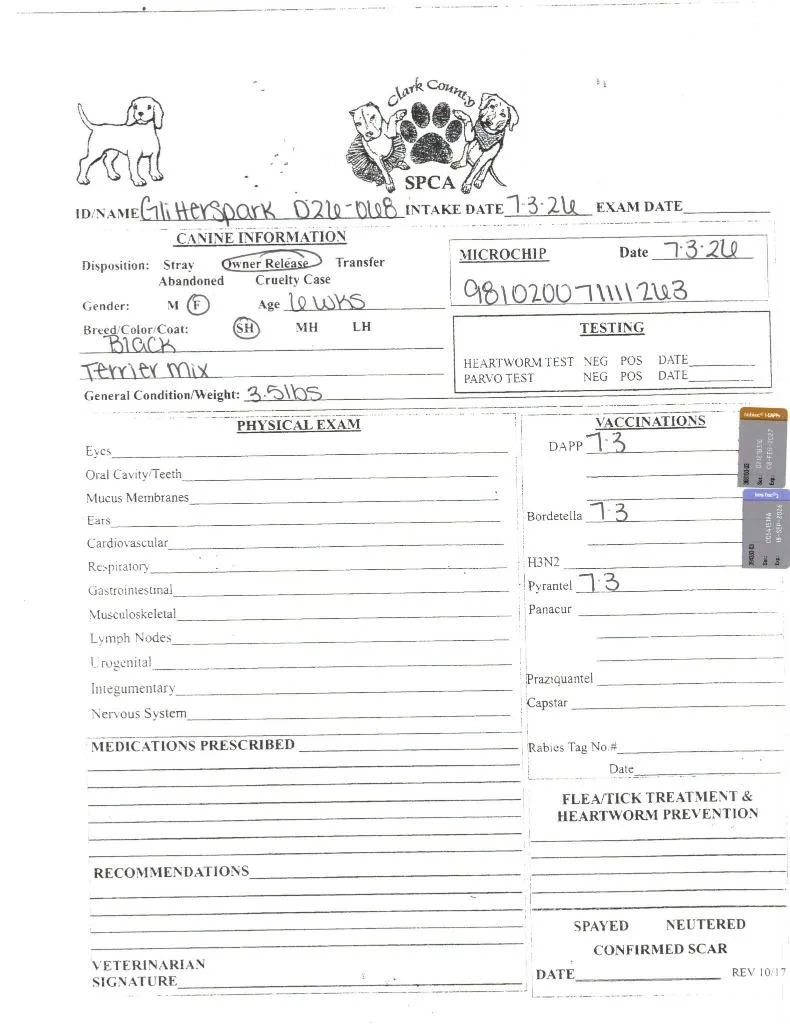 Clark County
SPCA
ID/NAME Glitterspark D26-068 INTAKE DATE 7-3-26 EXAM DATE
CANINE INFORMATION
Disposition: Stray Owner Release Transfer
Abandoned Cruelty Case
Gender: M F Age 6 wks
Breed/Color/Coat: SH MH LH
Black
Terrier mix
General Condition/Weight: 3.5lbs
MICROCHIP Date 7-3-26
981020071111263
TESTING
HEARTWORM TEST NEG POS DATE
PARVO TEST NEG POS DATE
PHYSICAL EXAM
Eyes
Oral Cavity/Teeth
Mucus Membranes
Ears
Cardiovascular
Respiratory
Gastrointestinal
Musculoskeletal
Lymph Nodes
Urogenital
Integumentary
Nervous System
VACCINATIONS
DAPP 7-3
Bordetella 7-3
H3N2
Pyrantel 7-3
Panacur
Praziquantel
Capstar
Rabies Tag No.#
Date
MEDICATIONS PRESCRIBED
FLEA/TICK TREATMENT &
HEARTWORM PREVENTION
RECOMMENDATIONS
SPAYED NEUTERED
CONFIRMED SCAR
VETERINARIAN
SIGNATURE
DATE REV 10/17